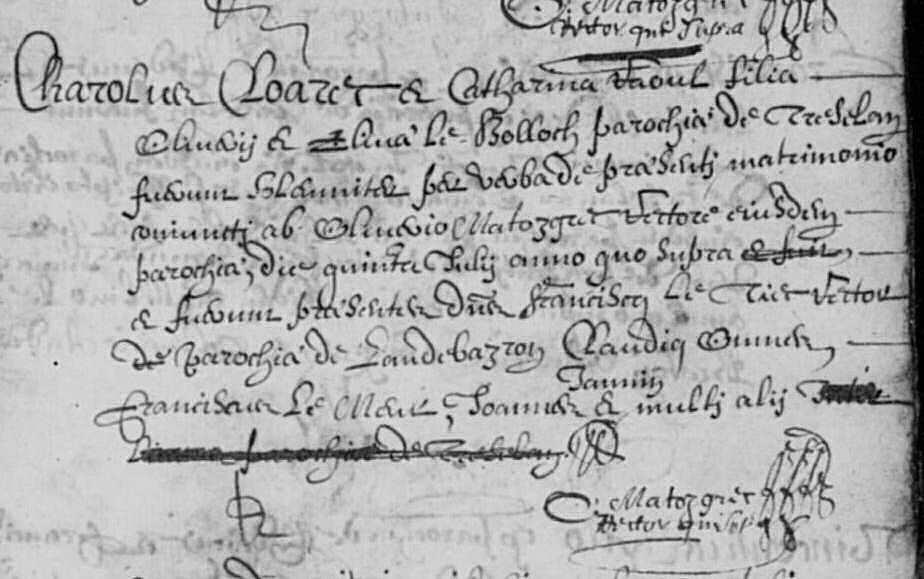 O. Matozgret
Rector qui supra
Charolus Cloaret & Catharina Raoul filia
Olivarij & Eliva Le Bolloch parochia de Treselan
fuerunt solemniter per verba de præsenti matrimonio
coniuncti ab Oliverio Matozgret Rectore eiusdem
parochia, die quinta Julij anno quo supra
& fuerunt præsentes dns franciscq Le rector
de parochia de Landebazron Claudiq
Franciscus Le Joannes Jannin & multi alij
parochia de
O. Matozgret
Rector qui supra